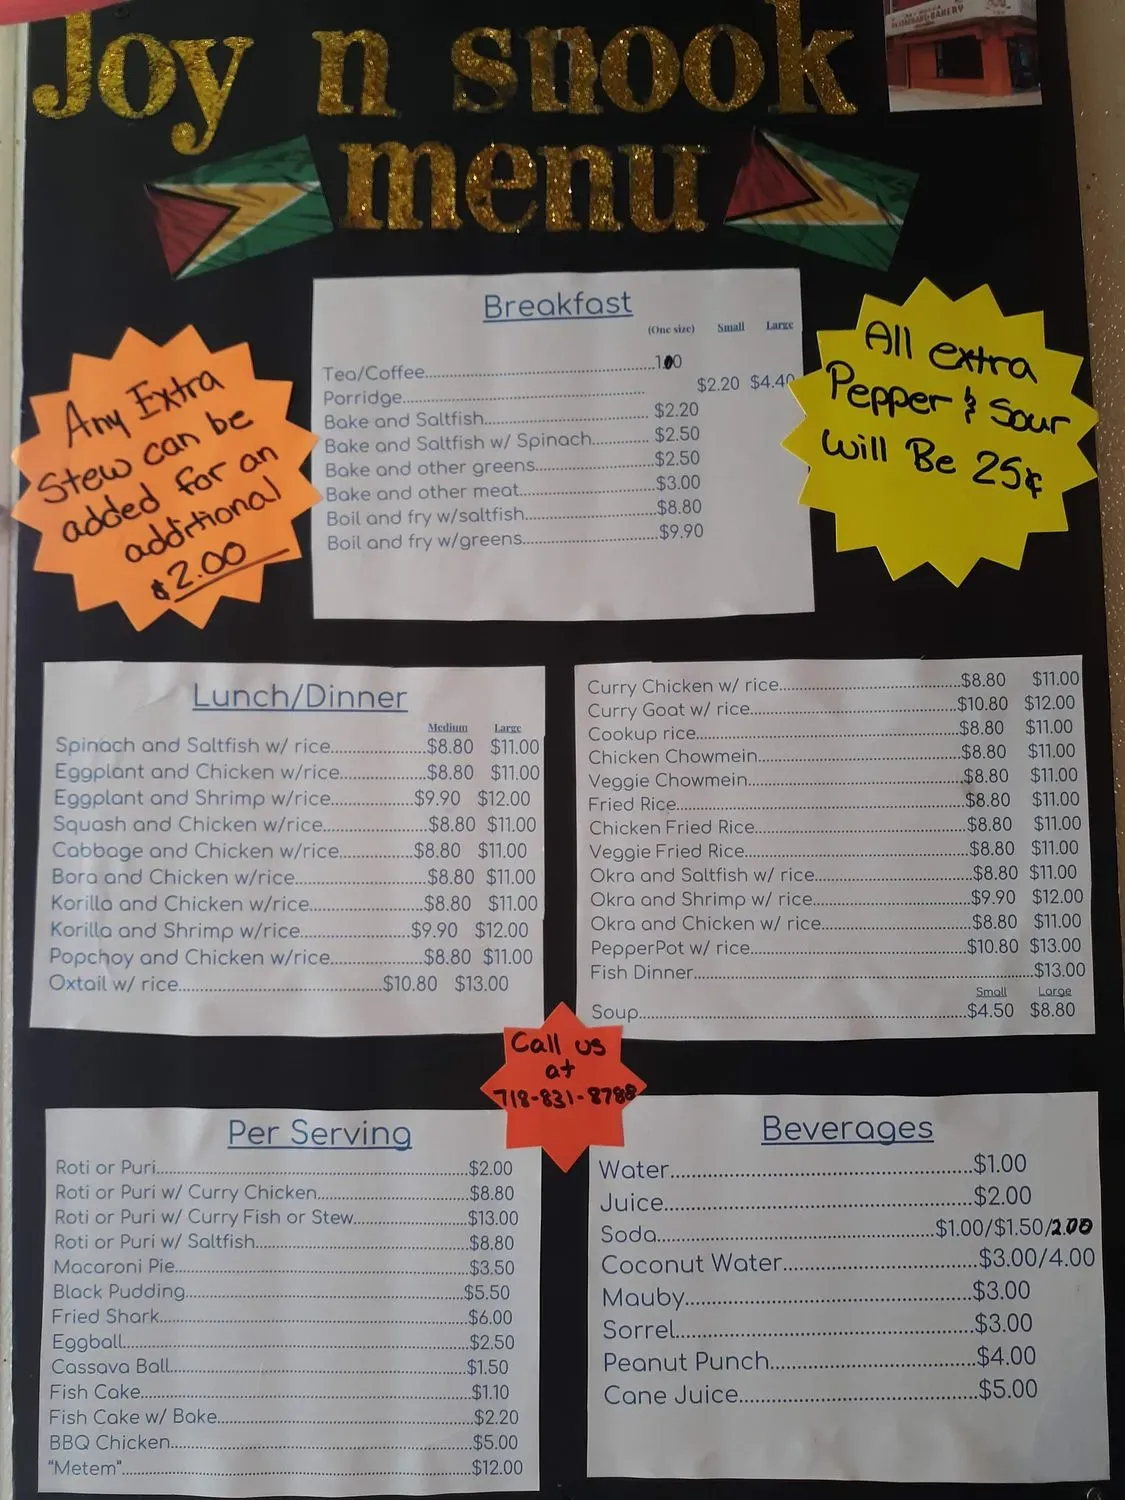 Joy n snook
menu
RESTAURANT & BAKERY
Any Extra
Stew can be
added for an
additional
$2.00
Breakfast
(One size) Small Large
Tea/Coffee..........1.00
Porridge.......... $2.20 $4.40
Bake and Saltfish.......... $2.20
Bake and Saltfish w/ Spinach.......... $2.50
Bake and other greens.......... $2.50
Bake and other meat.......... $3.00
Boil and fry w/saltfish..........$8.80
Boil and fry w/greens..........$9.90
All extra
Pepper & Sour
will Be 25¢
Lunch/Dinner
Medium Large
Spinach and Saltfish w/ rice..........$8.80 $11.00
Eggplant and Chicken w/rice..........$8.80 $11.00
Eggplant and Shrimp w/rice..........$9.90 $12.00
Squash and Chicken w/rice..........$8.80 $11.00
Cabbage and Chicken w/rice..........$8.80 $11.00
Bora and Chicken w/rice..........$8.80 $11.00
Korilla and Chicken w/rice..........$8.80 $11.00
Korilla and Shrimp w/rice..........$9.90 $12.00
Popchoy and Chicken w/rice..........$8.80 $11.00
Oxtail w/ rice..........$10.80 $13.00
Curry Chicken w/ rice..........$8.80 $11.00
Curry Goat w/ rice..........$10.80 $12.00
Cookup rice..........$8.80 $11.00
Chicken Chowmein..........$8.80 $11.00
Veggie Chowmein..........$8.80 $11.00
Fried Rice..........$8.80 $11.00
Chicken Fried Rice..........$8.80 $11.00
Veggie Fried Rice..........$8.80 $11.00
Okra and Saltfish w/ rice..........$8.80 $11.00
Okra and Shrimp w/ rice..........$9.90 $12.00
Okra and Chicken w/ rice..........$8.80 $11.00
PepperPot w/ rice..........$10.80 $13.00
Fish Dinner..........$13.00
Small Large
Soup..........$4.50 $8.80
Call us
at
718-831-8788
Per Serving
Roti or Puri..........$2.00
Roti or Puri w/ Curry Chicken..........$8.80
Roti or Puri w/ Curry Fish or Stew..........$13.00
Roti or Puri w/ Saltfish..........$8.80
Macaroni Pie..........$3.50
Black Pudding..........$5.50
Fried Shark..........$6.00
Eggball..........$2.50
Cassava Ball..........$1.50
Fish Cake..........$1.10
Fish Cake w/ Bake..........$2.20
BBQ Chicken..........$5.00
"Metem"..........$12.00
Beverages
Water..........$1.00
Juice..........$2.00
Soda..........$1.00/$1.50/2.00
Coconut Water..........$3.00/4.00
Mauby..........$3.00
Sorrel..........$3.00
Peanut Punch..........$4.00
Cane Juice..........$5.00